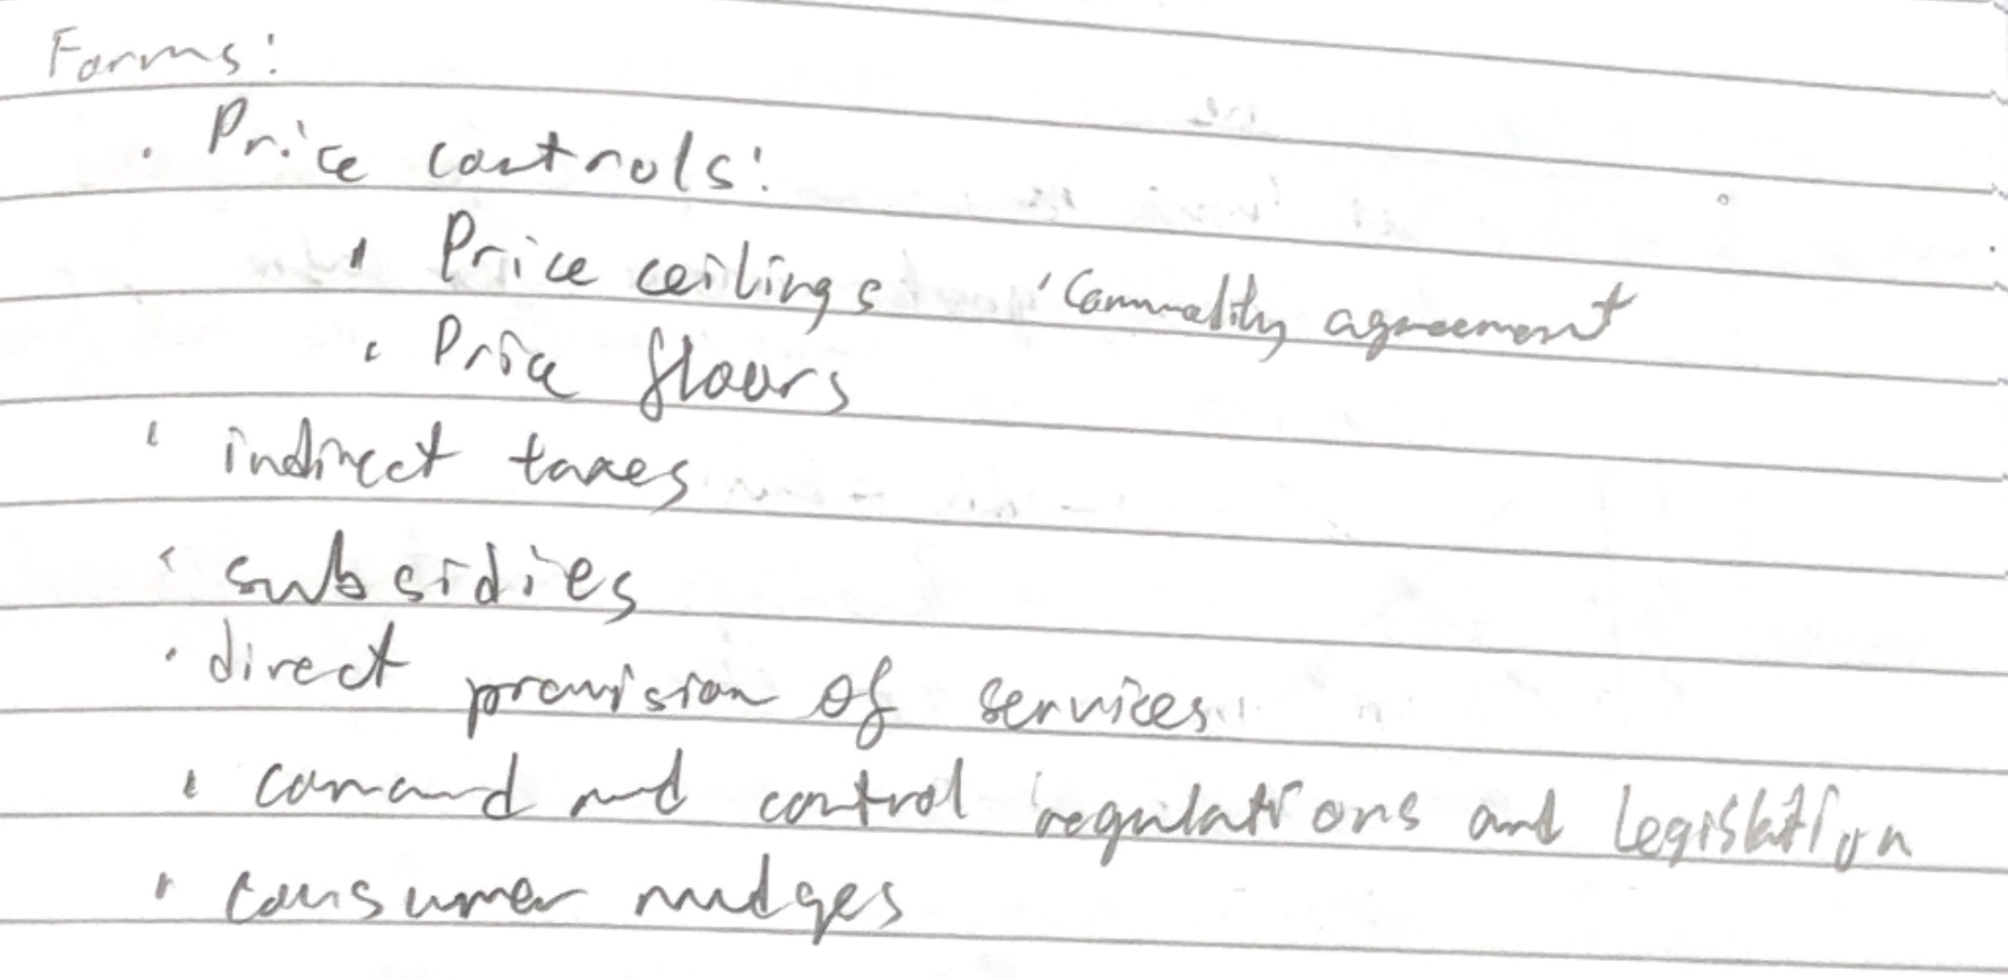 Forms:
· Price controls:
· Price ceilings · Commodity agreement
· Price floors
· indirect taxes
· subsidies
· direct provision of services
· command and control regulations and legislation
· consumer nudges